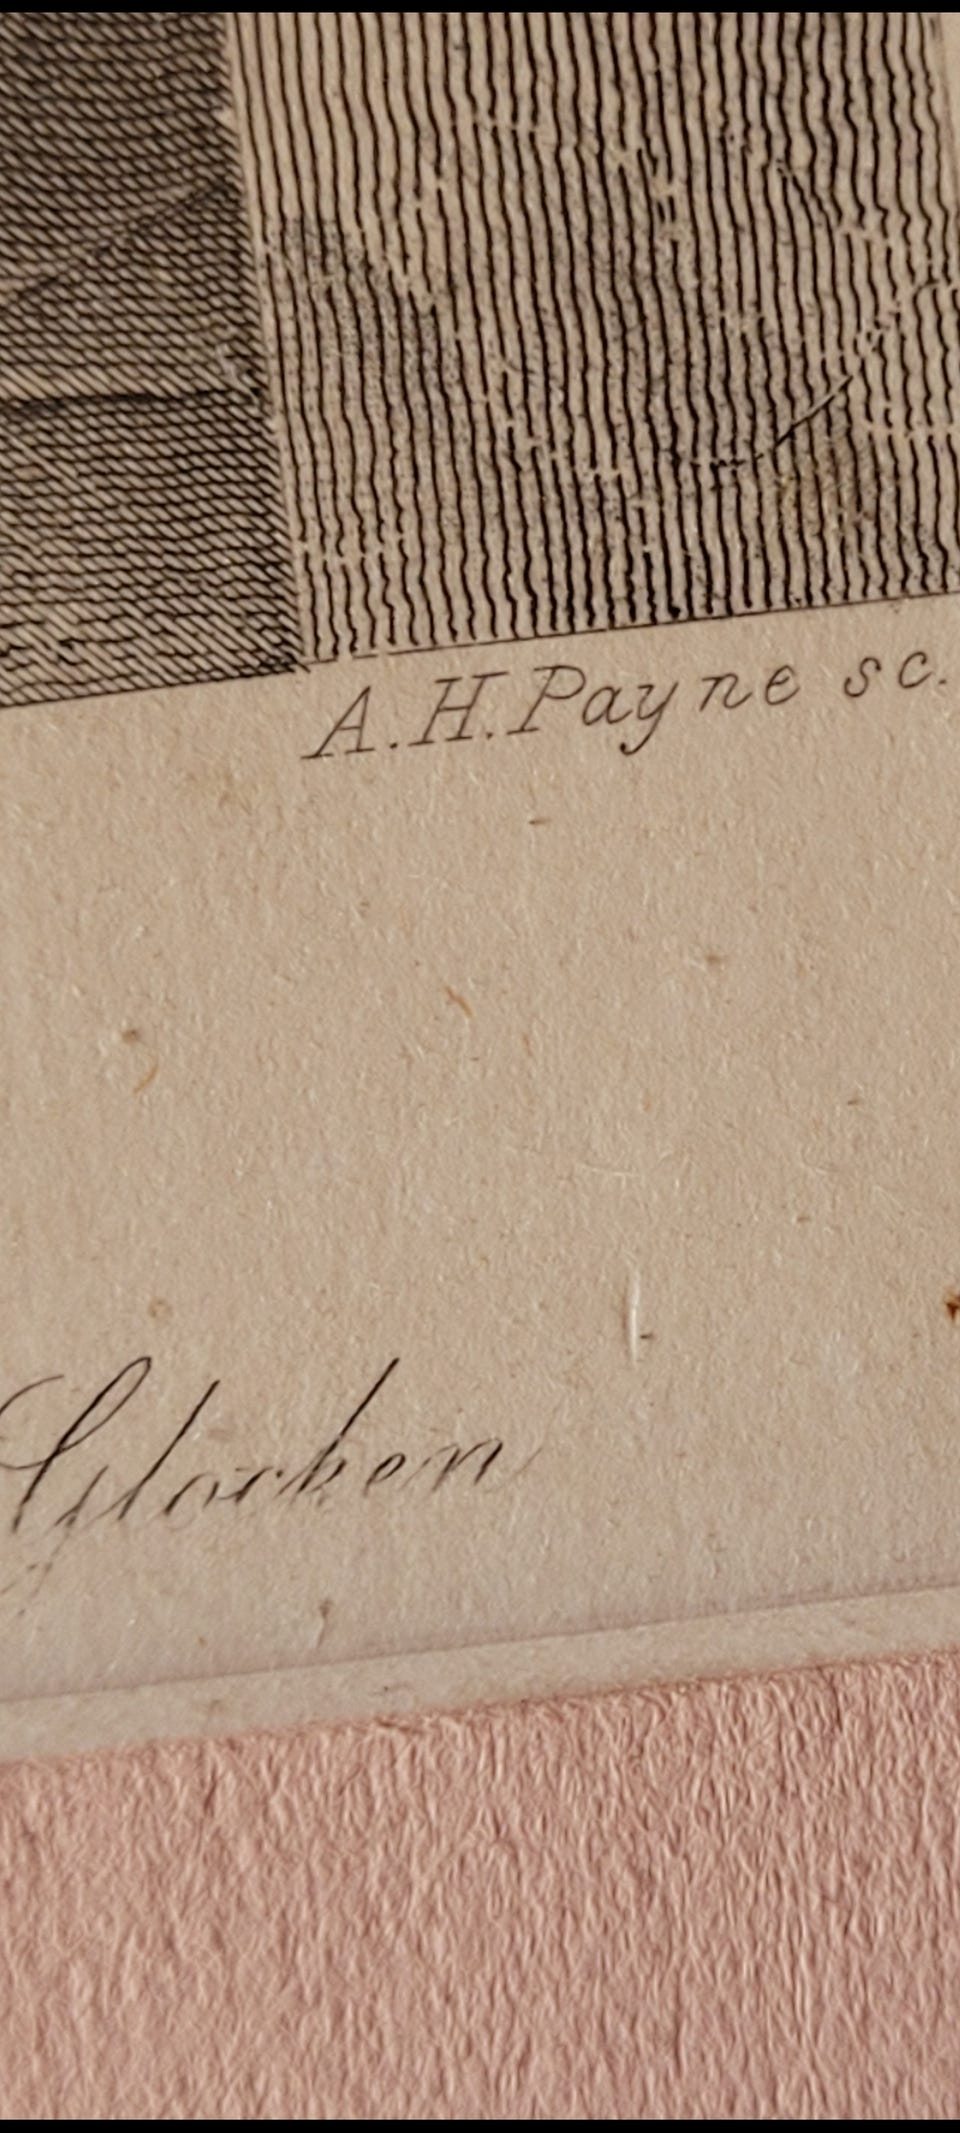 A.H.Payne sc.
Glocken